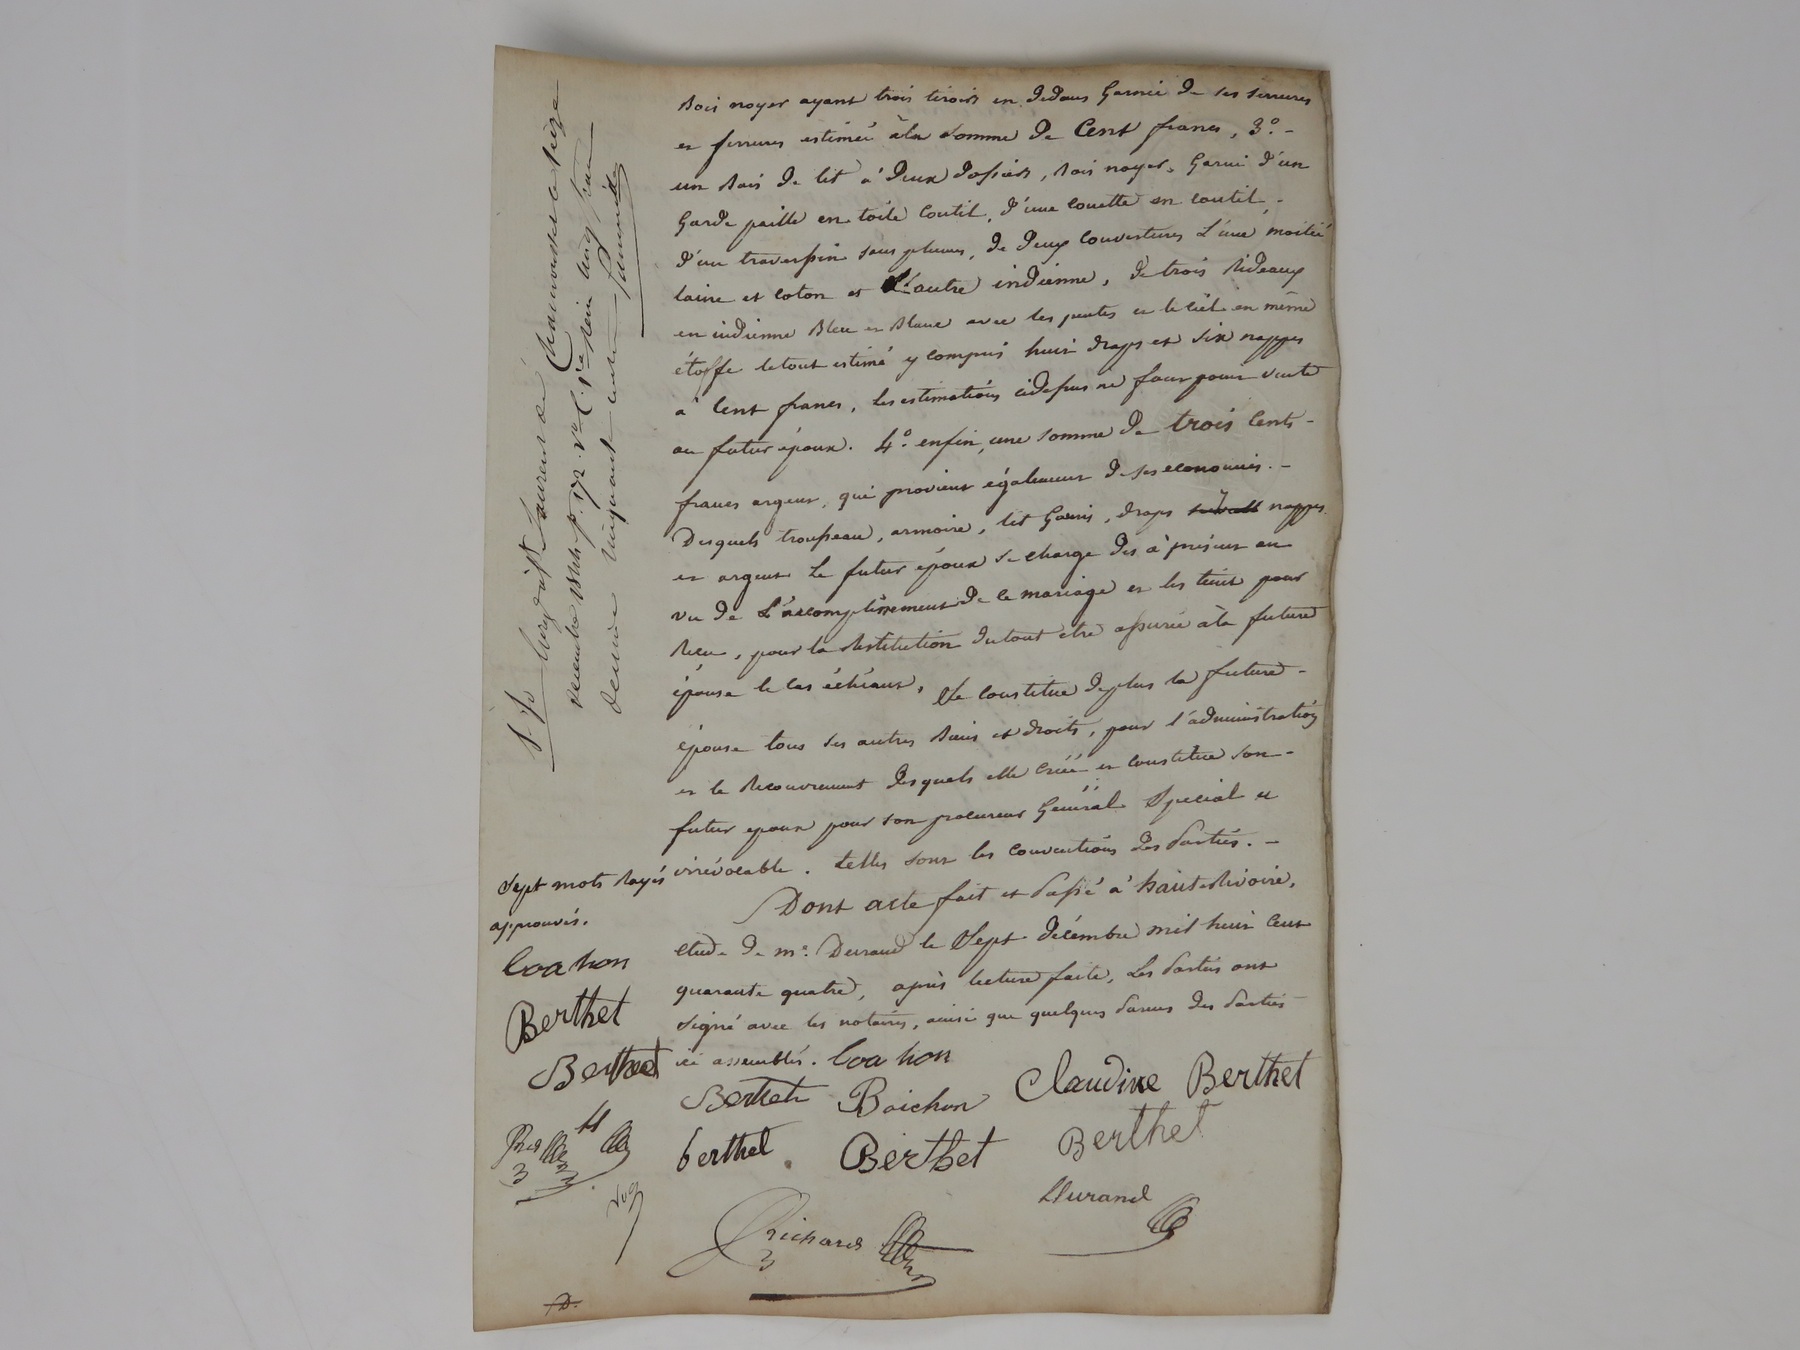 Bois noyer ayant trois tiroirs en dedans Garnie de ses serrures
et ferrures estimée à la somme de Cent francs, 3º. -
un Bois de lit à deux dossiers, Bois noyer, Garni d'un
Garde paille en toile Coutil, d'une couette en coutil, -
d'un traverssin sans plumes, de deux couvertures L'une moitié
laine et coton et L'autre indienne, de trois Rideaux
en indienne Bleu et Blanc avec les pentes et le ciel en même
étoffe le tout estimé y compris huit draps et six nappes
à Cent francs, les estimations cidessus ne font point vente
au futur époux. 4º. enfin, une somme de trois Cents -
francs argent, qui provient également de ses economies. -
Desquels trousseau, armoire, lit Garni, draps nappes
et argent Le futur époux se charge dès à présent au
vu de L'accomplissement de ce mariage et les tient pour
Recu, pour la Restitution du tout être assurée à la future
épouse le cas échéant, Se constitue de plus la future -
épouse tous ses autres Biens et droits, pour l'administration
et le Recouvrement desquels elle créé et constitue son -
futur epoux pour son procureur Général Spécial et
irrévocable. telles sont les conventions des Parties. -
Dont acte fait et Passé à haute Rivoire,
etude de me. Durand le Sept décembre mil huit Cent
quarante quatre, après lecture faite, Les Parties ont
signé avec les notaires, ainsi que quelques Parens des Parties
ici assemblés. Coahon
Berthet Boichon Claudine Berthet
berthet Berthet Berthet
Durand
Richard
Sept mots Rayés
approuvés.
Coahon
Berthet
Berthet
D.